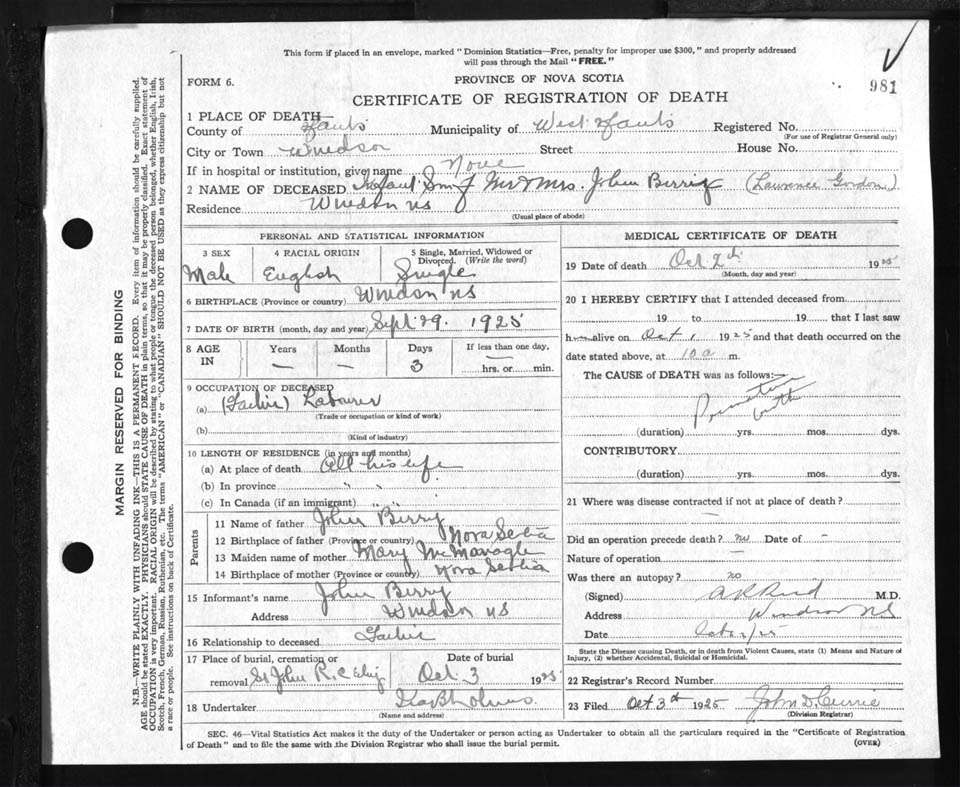 This form if placed in an envelope, marked "Dominion Statistics—Free, penalty for improper use $300," and properly addressed
will pass through the Mail "FREE."
981
FORM 6.
PROVINCE OF NOVA SCOTIA
CERTIFICATE OF REGISTRATION OF DEATH
1 PLACE OF DEATH—
County of Hants Municipality of West Hants Registered No.
(For use of Registrar General only)
City or Town Windsor Street House No.
If in hospital or institution, give name None
2 NAME OF DECEASED Infant Son of Mr & Mrs. John Berry (Lawrence Gordon)
Residence Windsor NS
(Usual place of abode)
PERSONAL AND STATISTICAL INFORMATION
3 SEX 4 RACIAL ORIGIN 5 Single, Married, Widowed or
Divorced. (Write the word)
Male English Single
6 BIRTHPLACE (Province or country) Windsor NS
7 DATE OF BIRTH (month, day and year) Sept 29. 1925
8 AGE IN Years Months Days If less than one day,
— — 3 hrs. or min.
9 OCCUPATION OF DECEASED
(a) (Father) Labourer
(Trade or occupation or kind of work)
(b)
(Kind of industry)
10 LENGTH OF RESIDENCE (in years and months)
(a) At place of death All his life
(b) In province " " "
(c) In Canada (if an immigrant) " " "
Parents
11 Name of father John Berry
12 Birthplace of father (Province or country) Nova Scotia
13 Maiden name of mother Mary McMonagle
14 Birthplace of mother (Province or country) Nova Scotia
15 Informant's name John Berry
Address Windsor NS
16 Relationship to deceased Father
17 Place of burial, cremation or Date of burial
removal St John R.C. Oct 3 1925
18 Undertaker
(Name and address)
MEDICAL CERTIFICATE OF DEATH
19 Date of death Oct 2nd 1925
(Month, day and year)
20 I HEREBY CERTIFY that I attended deceased from
19 to 19 that I last saw
him alive on Oct 1 1925 and that death occurred on the
date stated above, at 10 a m.
The CAUSE of DEATH was as follows:—
Premature birth
(duration) yrs. mos. dys.
CONTRIBUTORY
(duration) yrs. mos. dys.
21 Where was disease contracted if not at place of death?
Did an operation precede death? no Date of –
Nature of operation —
Was there an autopsy? no
(Signed) M.D.
Address Windsor NS
Date Oct 2/25
State the Disease causing Death, or in death from Violent Causes, state (1) Means and Nature of
Injury, (2) whether Accidental, Suicidal or Homicidal.
22 Registrar's Record Number
23 Filed Oct 3th 1925 John D. Currie
(Division Registrar)
SEC. 46—Vital Statistics Act makes it the duty of the Undertaker or person acting as Undertaker to obtain all the particulars required in the "Certificate of Registration
of Death" and to file the same with the Division Registrar who shall issue the burial permit.
(OVER)
MARGIN RESERVED FOR BINDING
N.B.—WRITE PLAINLY WITH UNFADING INK—THIS IS A PERMANENT RECORD. Every item of information should be carefully supplied.
AGE should be stated EXACTLY. PHYSICIANS should STATE CAUSE OF DEATH in plain terms, so that it may be properly classified. Exact statement of
OCCUPATION is very important. RACIAL ORIGIN will be described by stating to what people or tongue the deceased person belonged, whether English, Irish,
Scotch, French, German, Russian, Ruthenian, etc. The terms "AMERICAN" or "CANADIAN" SHOULD NOT BE USED as they express citizenship but not
a race or people. See instructions on back of Certificate.